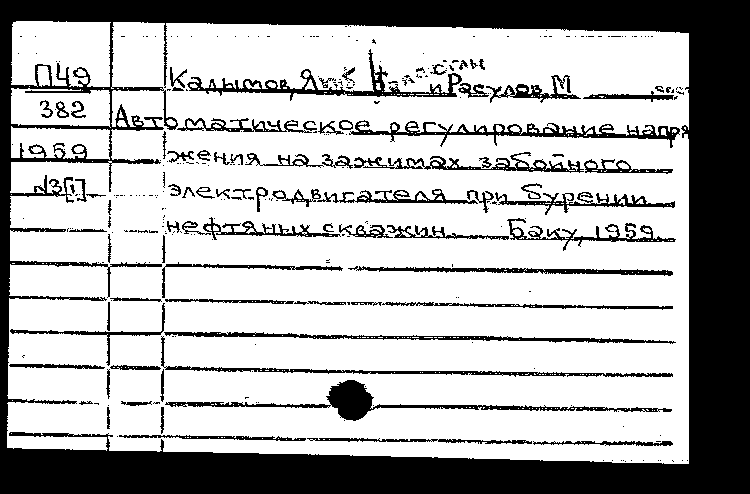 П49 Кадымов, Якуб и Расулов, М
382 Автоматическое регулирование напря
1959 жения на зажимах забойного
№3[1] электродвигателя при бурении
нефтяных скважин. Баку, 1959.